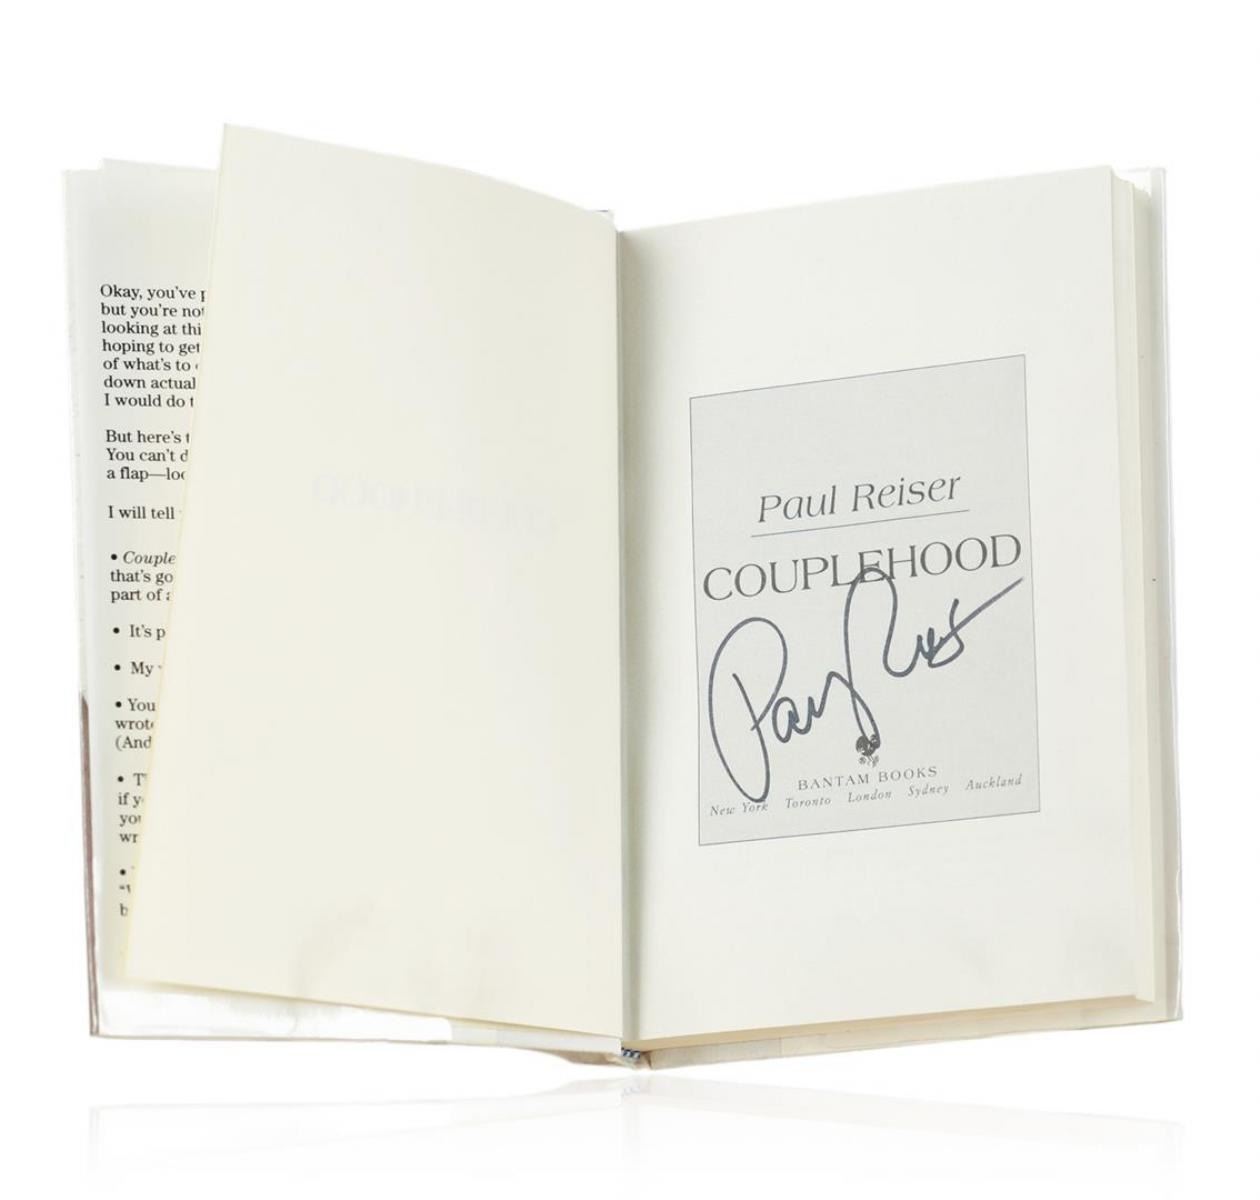 Okay, you've
but you're
looking at
hoping to get
of what's to
down actual
I would do
But here's
You can't
a flap—
I will tell
• Couple
that's go
part of
• It's
• My
• You
(And
if
Paul Reiser
COUPLEHOOD
Paul Reiser
BANTAM BOOKS
New York Toronto London Sydney Auckland